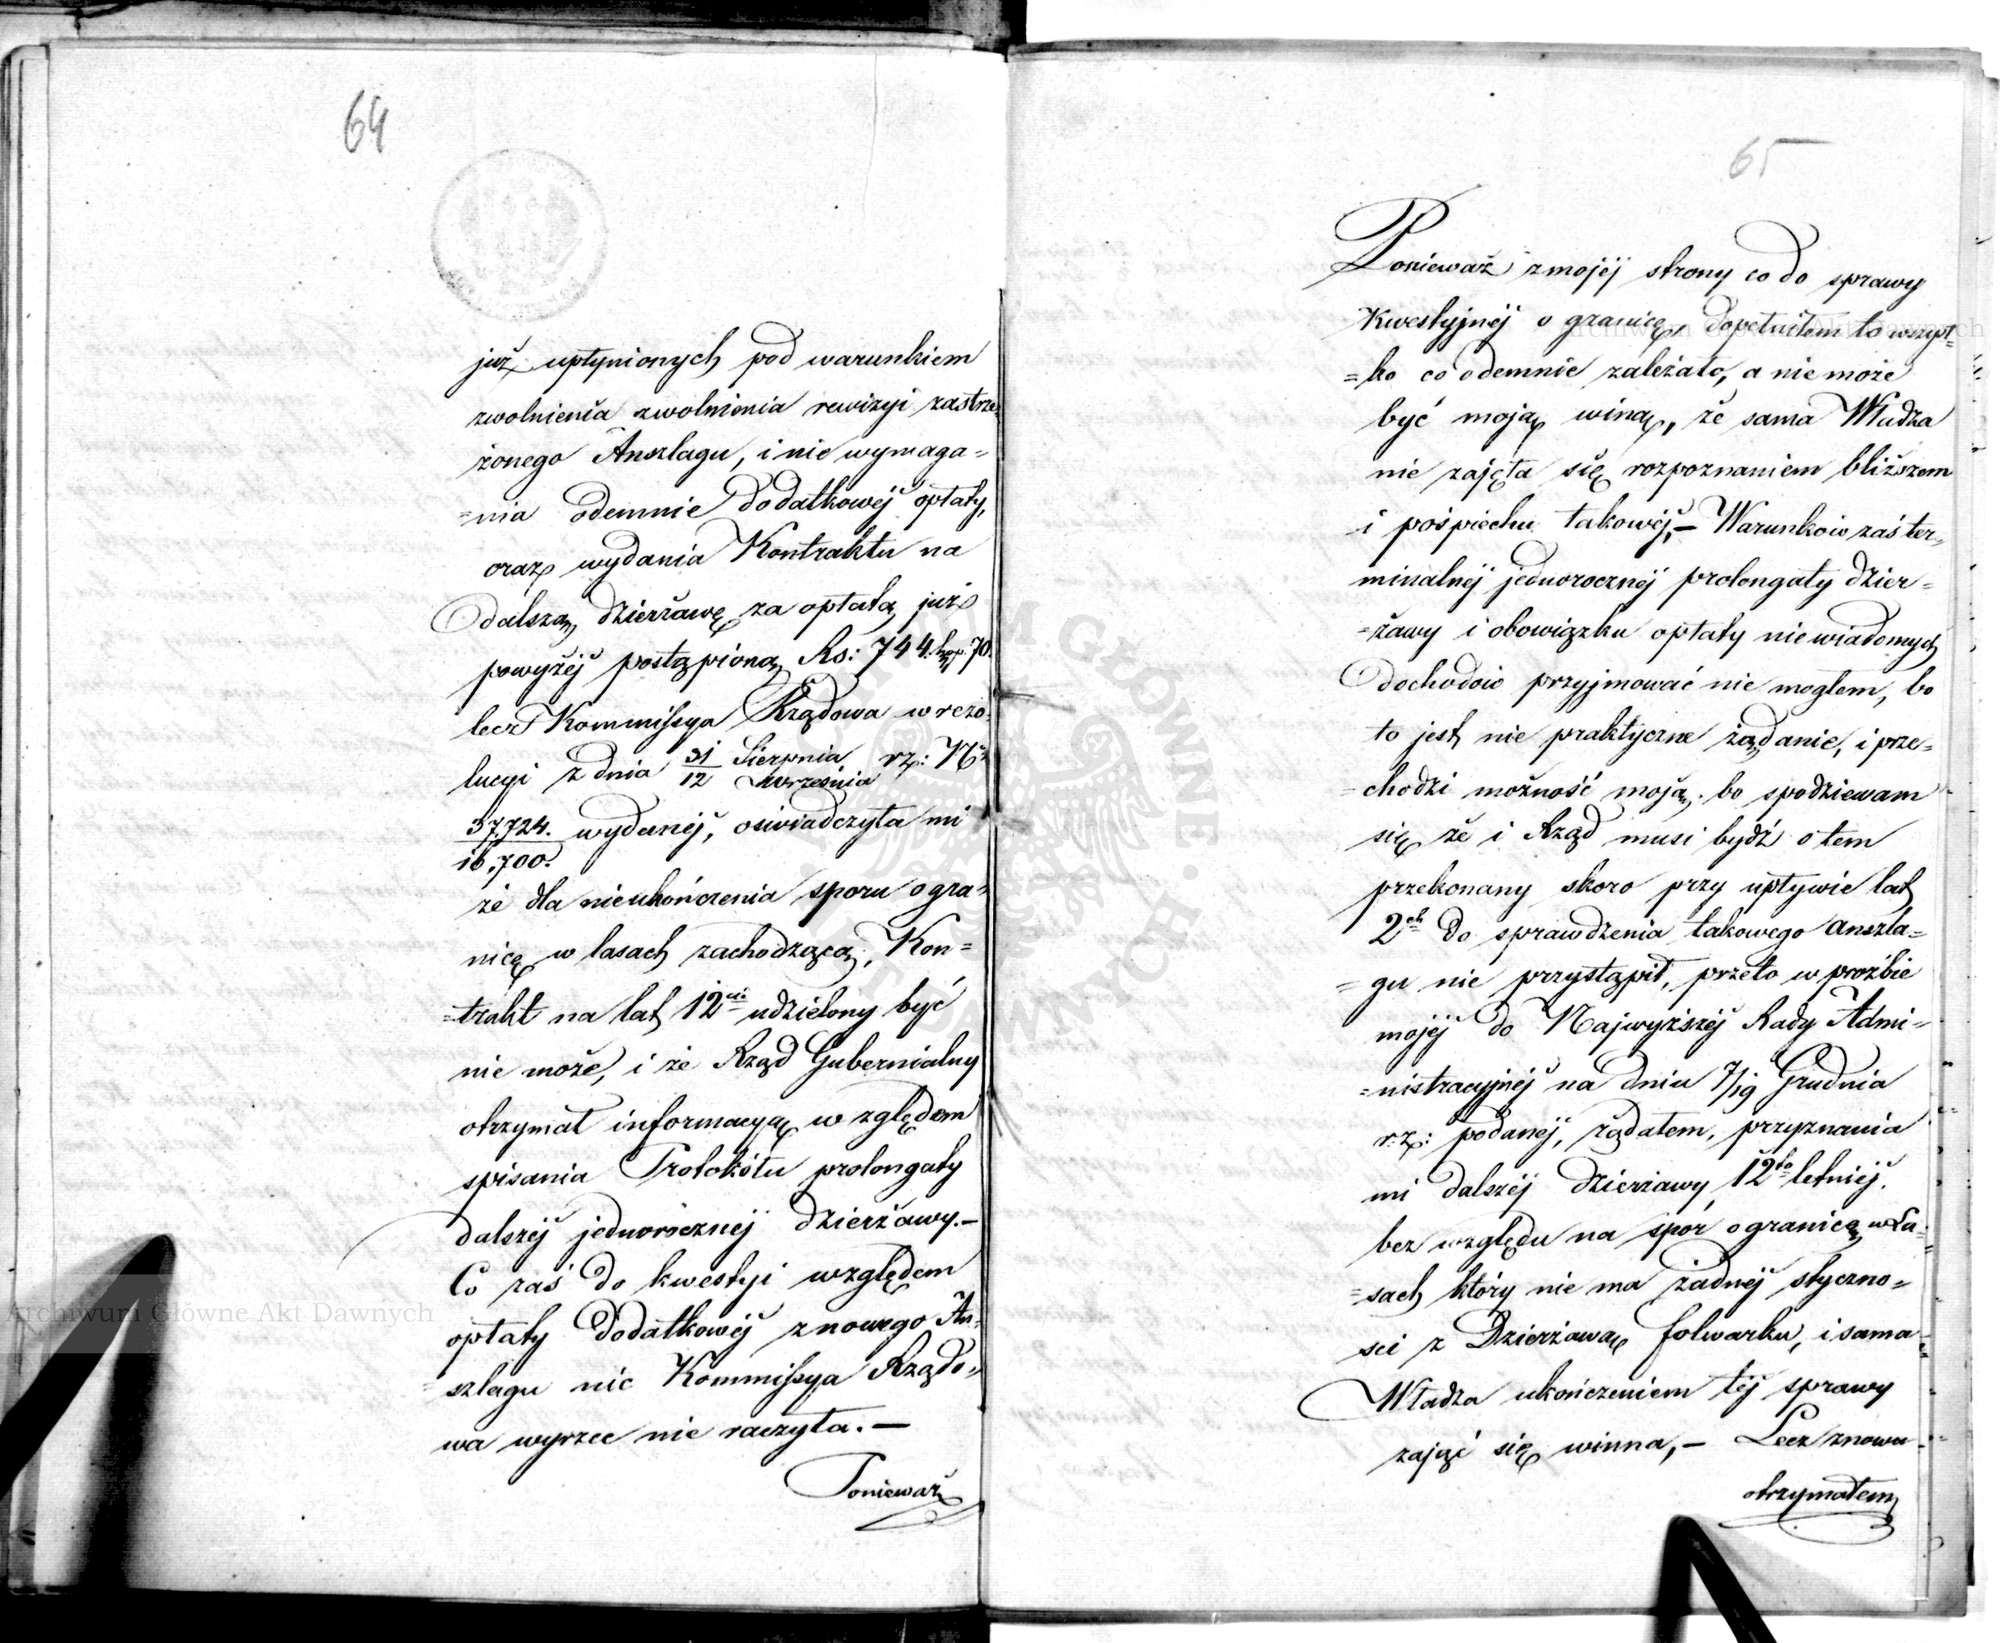 64
już upłynionych pod warunkiem
zwolnienia zwolnienia rewizyi zastrze=
żonego Anszlagu, i nie wymaga=
=nia odemnie dodatkowéj opłaty,
oraz wydania Kontraktu na
dalszą dzierżawę za opłatą już
powyżéj postąpioną Rs: 744. kop. 70.
lecz Kommissya Rządowa w rezo=
lucyi z dnia 31/12 Sierpnia/Września r.z: No
37,724./16,700. wydanéj, oświadczyła mi
że dla nieukończenia sporu o gra=
nicę w lasach zachodzącą, Kon=
=trakt na lat 12cie udzielony być
nie może, i że Rząd Gubernialny
otrzymał informacyą względem
spisania Protokółu prolongaty
dalszéj jednorocznéj dzierżawy.—
Co zaś do kwestyi względem
opłaty dodatkowéj z nowego An=
=szlagu nic Kommissya Rządo=
wa wyrzec nie raczyła.—
Ponieważ
65
Ponieważ z mojéj strony co do sprawy
Kwestyjnéj o granicę, dopełniłem to wszyst=
=ko co odemnie zależało, a nie może
być moją winą, że sama Władza
nie zajęła się rozpoznaniem bliższem
i pośpiechu takowéj,— Warunków zaś ter=
minalnéj jednorocznéj prolongaty dzier=
=żawy i obowiązku opłaty niewiadomych
dochodów przyjmować nie mogłem, bo
to jest nie praktyczne żądanie, i prze=
=chodzi możność moją, bo spodziewam
się że i Rząd musi bydź o tem
przekonany skoro przy upływie lat
2ch do sprawdzenia takowego anszla=
=gu nie przystąpił, przeto w prozbie
mojéj do Najwyższéj Rady Admi=
=nistracyjnéj na dniu 7/19 Grudnia
r.z: podanéj, żądałem, przyznania
mi dalszéj dzierżawy 12to letniéj,
bez względu na spór o granicę w La=
=sach który nie ma żadnéj styczno=
sci z Dzierżawą folwarku, i sama
Władza ukończeniem téj sprawy
zająć się winna,— Lecz znowu
otrzymałem
Archiwum Główne Akt Dawnych